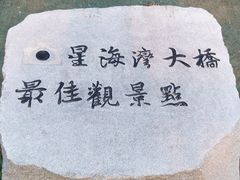 星海灣大橋
最佳觀景點